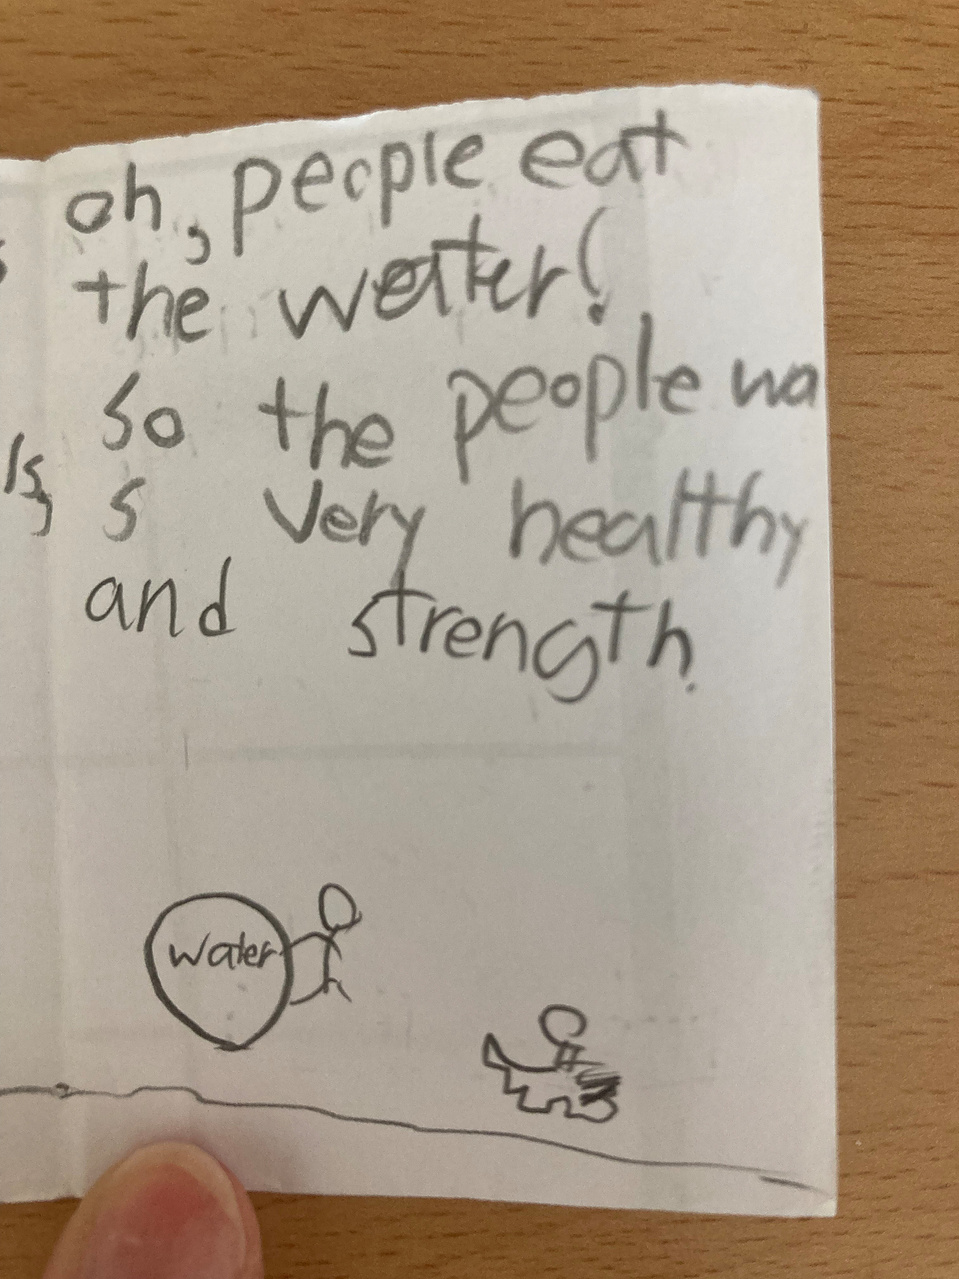 oh, people eat
the water!
so the people wa
s very healthy
and strength.
ls,
water